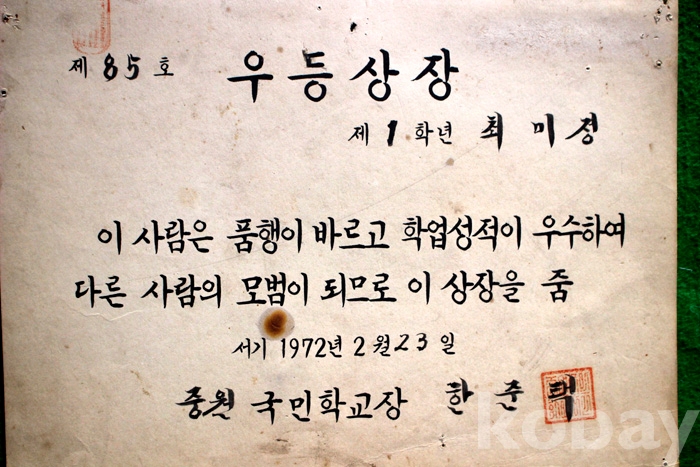 제 85 호 우등상장
제 1 학년 최 미 정
이 사람은 품행이 바르고 학업성적이 우수하여
다른 사람의 모범이 되므로 이 상장을 줌
서기 1972년 2월 23일
중원 국민학교장 한 준 택
kobay